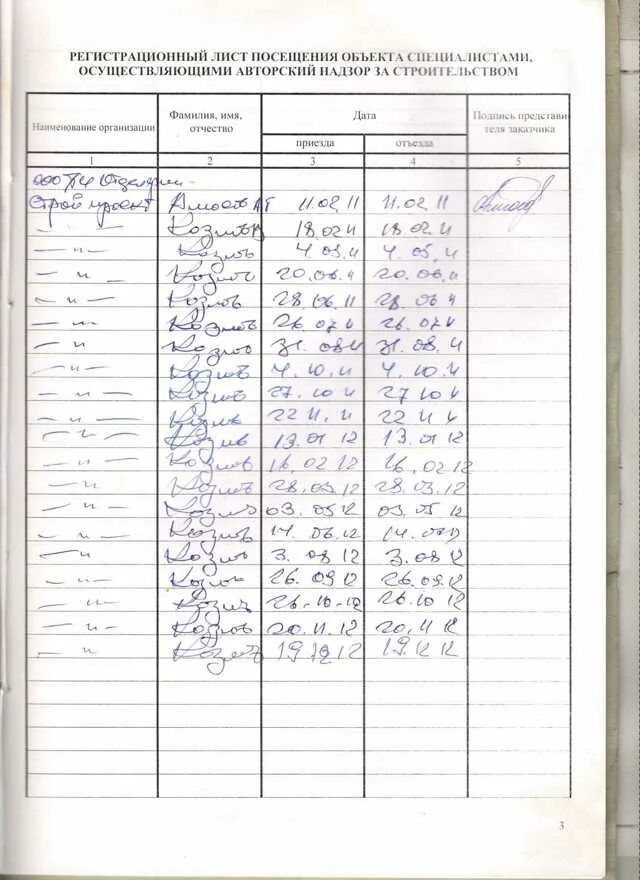 РЕГИСТРАЦИОННЫЙ ЛИСТ ПОСЕЩЕНИЯ ОБЪЕКТА СПЕЦИАЛИСТАМИ,
ОСУЩЕСТВЛЯЮЩИМИ АВТОРСКИЙ НАДЗОР ЗА СТРОИТЕЛЬСТВОМ
Наименование организации Фамилия, имя, отчество Дата Подпись представи теля заказчика
приезда отъезда
1 2 3 4 5
ООО
Строй проект 11.02 11 11.02 11
— и — Козлов 18.02 11 18.02 11
— и — Козлов 4.05.11 4.05.11
— и — Козлов 20.06.11 20.06.11
— и — Козлов 28.06.11 28.06.11
— и — Козлов 26.07.11 26.07.11
и Козлов 31.08.11 31.08.11
— и — Козлов 4.10.11 4.10.11
— и — Козлов 27.10.11 27.10.11
— и — Козлов 22.11.11 22.11.11
— и — Козлов 01 12 13.01 12
— и — Козлов 16.02 12 16.02.12
— и Козлов 28.03.12 28.03.12
— и — Козлов 03.05.12 03.05.12
— и — Козлов 14.06.12 14.
— и Козлов 3.08 12 3.08 12
— и — Козлов 26.09 12 26.09.12
— и — Козлов 26.10.12 26.10 12
— и — Козлов 20.11.12 20.11 12
— и Козлов 19.12 12 19.12 12
3